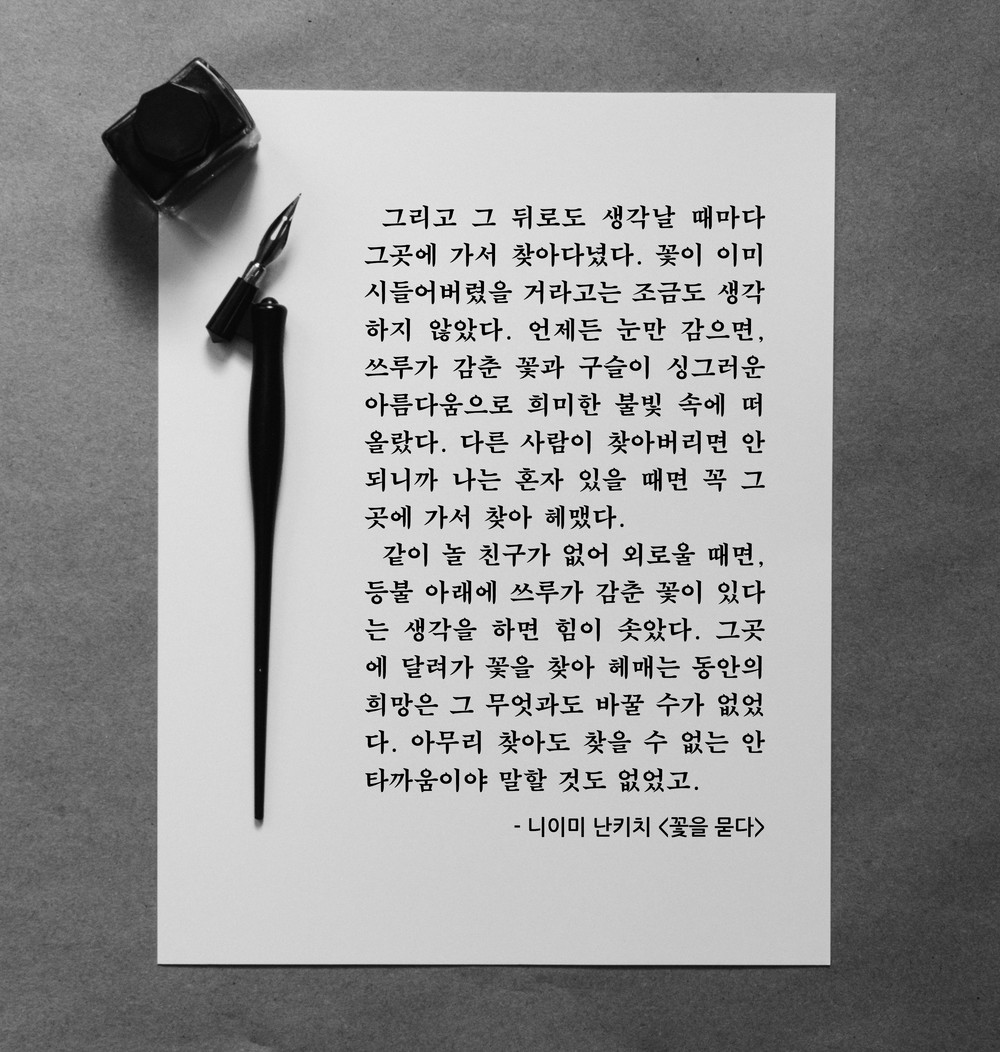 그리고 그 뒤로도 생각날 때마다
그곳에 가서 찾아다녔다. 꽃이 이미
시들어버렸을 거라고는 조금도 생각
하지 않았다. 언제든 눈만 감으면,
쓰루가 감춘 꽃과 구슬이 싱그러운
아름다움으로 희미한 불빛 속에 떠
올랐다. 다른 사람이 찾아버리면 안
되니까 나는 혼자 있을 때면 꼭 그
곳에 가서 찾아 헤맸다.
같이 놀 친구가 없어 외로울 때면,
등불 아래에 쓰루가 감춘 꽃이 있다
는 생각을 하면 힘이 솟았다. 그곳
에 달려가 꽃을 찾아 헤매는 동안의
희망은 그 무엇과도 바꿀 수가 없었
다. 아무리 찾아도 찾을 수 없는 안
타까움이야 말할 것도 없었고.
- 니이미 난키치 <꽃을 묻다>